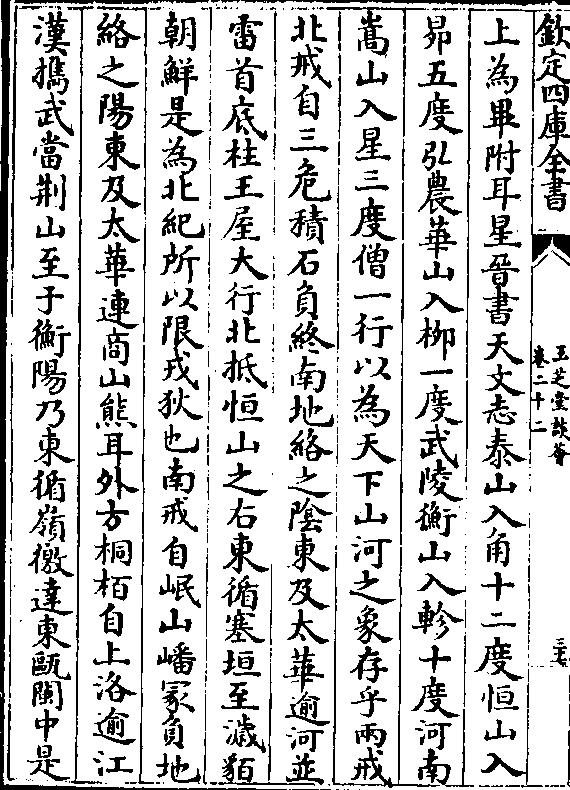 欽定四庫全書
玉芝堂談薈
卷二十二
三七
上為畢附耳星晉書天文志泰山入角十二度恒山入
昴五度弘農華山入柳一度武陵衡山入軫十度河南
嵩山入星三度僧一行以為天下山河之象存乎兩戒
北戒自三危積石負終南地絡之陰東及太華逾河並
雷首底柱王屋大行北抵恒山之右東循塞垣至濊貊
朝鮮是為北紀所以限戎狄也南戒自岷山嶓冢負地
絡之陽東及太華連商山熊耳外方桐栢自上洛逾江
漢擕武當荆山至于衡陽乃東循嶺徼達東甌閩中是